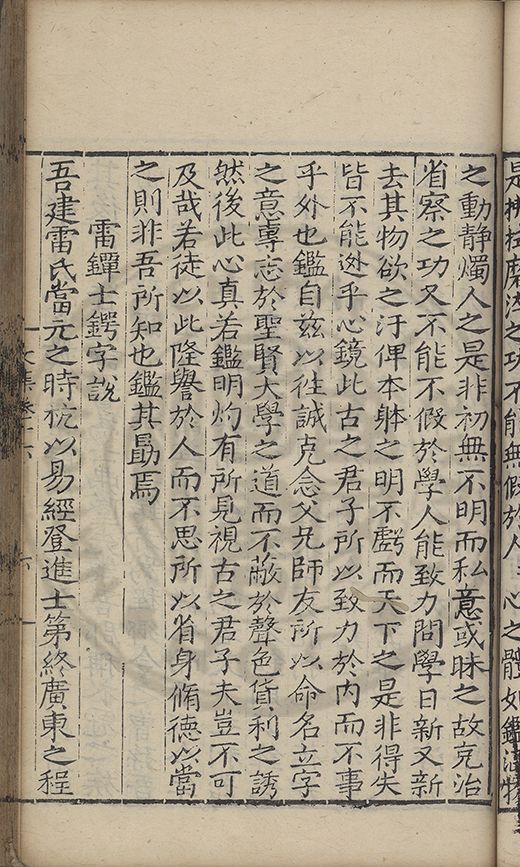 是 磨 之功不能無假於人 心之體如鑑 物
之動静燭人之是非初無不明而私意或昧之故克治
省察之功又不能不假於學人能致力問學日新又新
去其物欲之汙俾本躰之明不虧而天下之是非得失
皆不能迯乎心鏡此古之君子所以致力於内而不事
乎外也鑑自兹以徃誠克念父兄師友所以命名立字
之意專志於聖賢大學之道而不蔽於聲色貨利之誘
然後此心真若鑑明灼有所見視古之君子夫豈不可
及哉若徒以此隆譽於人而不思所以省身脩德以當
之則非吾所知也鑑其勗焉
雷鐔士鍔字說
吾建雷氏當元之時杭以易經登進士第終廣東之程